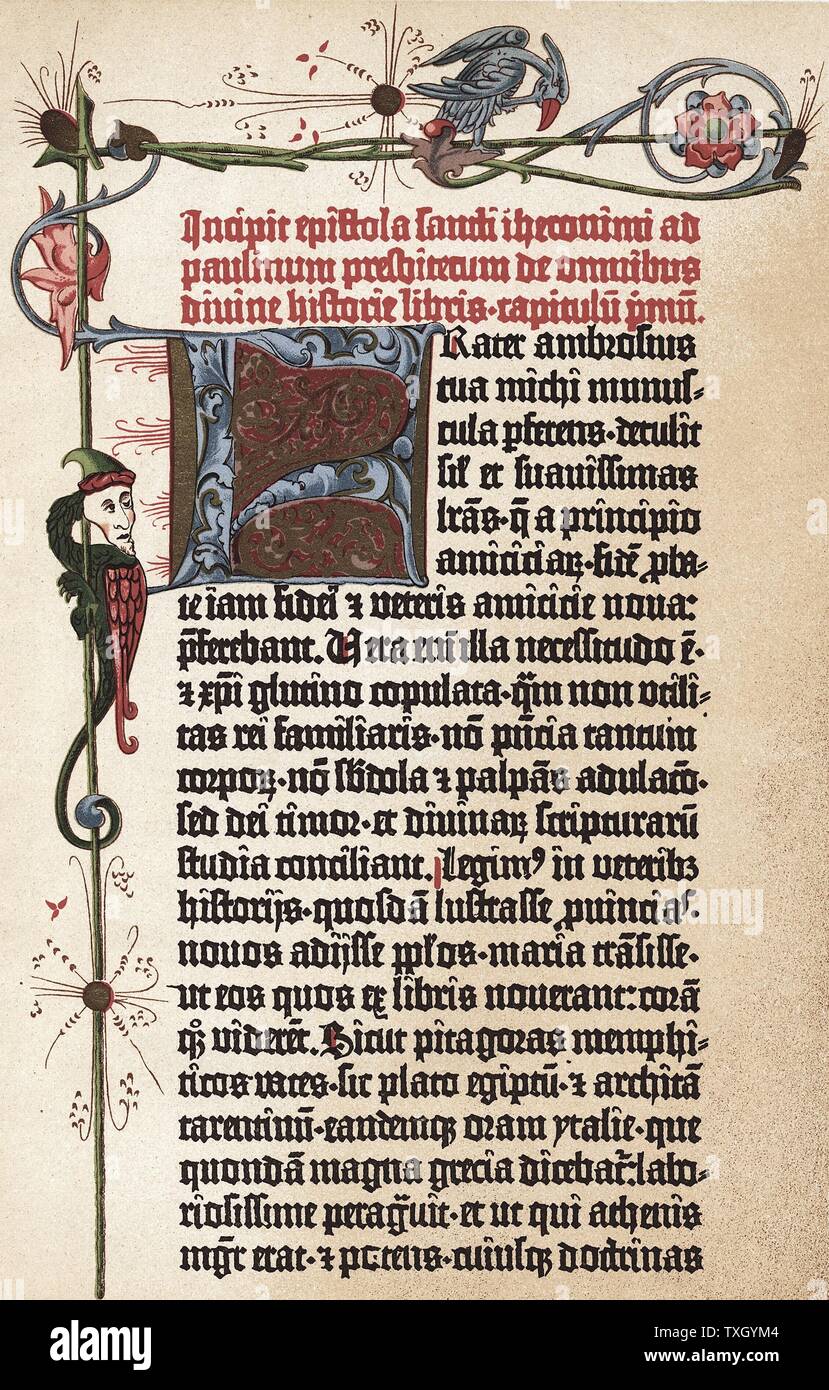 Incipit epistola sancti iheronimi ad
paulinum presbiterum de omnibus
divine historie libris·capitulū pmū.
FRater ambrosius
tua michi munus=
cula pferens·detulit
sil' et suavissimas
lrās·q̄ a principio
amiciciaꝝ·fidē pba=
te iam fidei ⁊ veteris amicicie nova:
pferebant. Vera enī illa necessitudo ē·
⁊ xpi glutino copulata·qm non utili=
tas rei familiaris·nō pntia tantum
corpoꝝ·nō sbdola ⁊ palpās adulacō·
sed dei timor·et divinaꝝ scripturarū
studia conciliant. Legimꝰ in veteribꝫ
historijs·quosdā lustrasse pvincias·
novos adijsse pplos·maria trāsisse·
ut eos quos ex libris noverant:corā
qꝫ viderēt. Sicut pitagoras memphi=
ticos vates·sic plato egiptū·⁊ architā
tarentinū·eandemqꝫ oram ytalie·que
quondā magna grecia dicebat':labo=
riosissime peragvit·et ut qui athenis
mgr erat·⁊ potens·cuiusqꝫ doctrinas
alamy
Image ID: TXGYM4
www.alamy.com